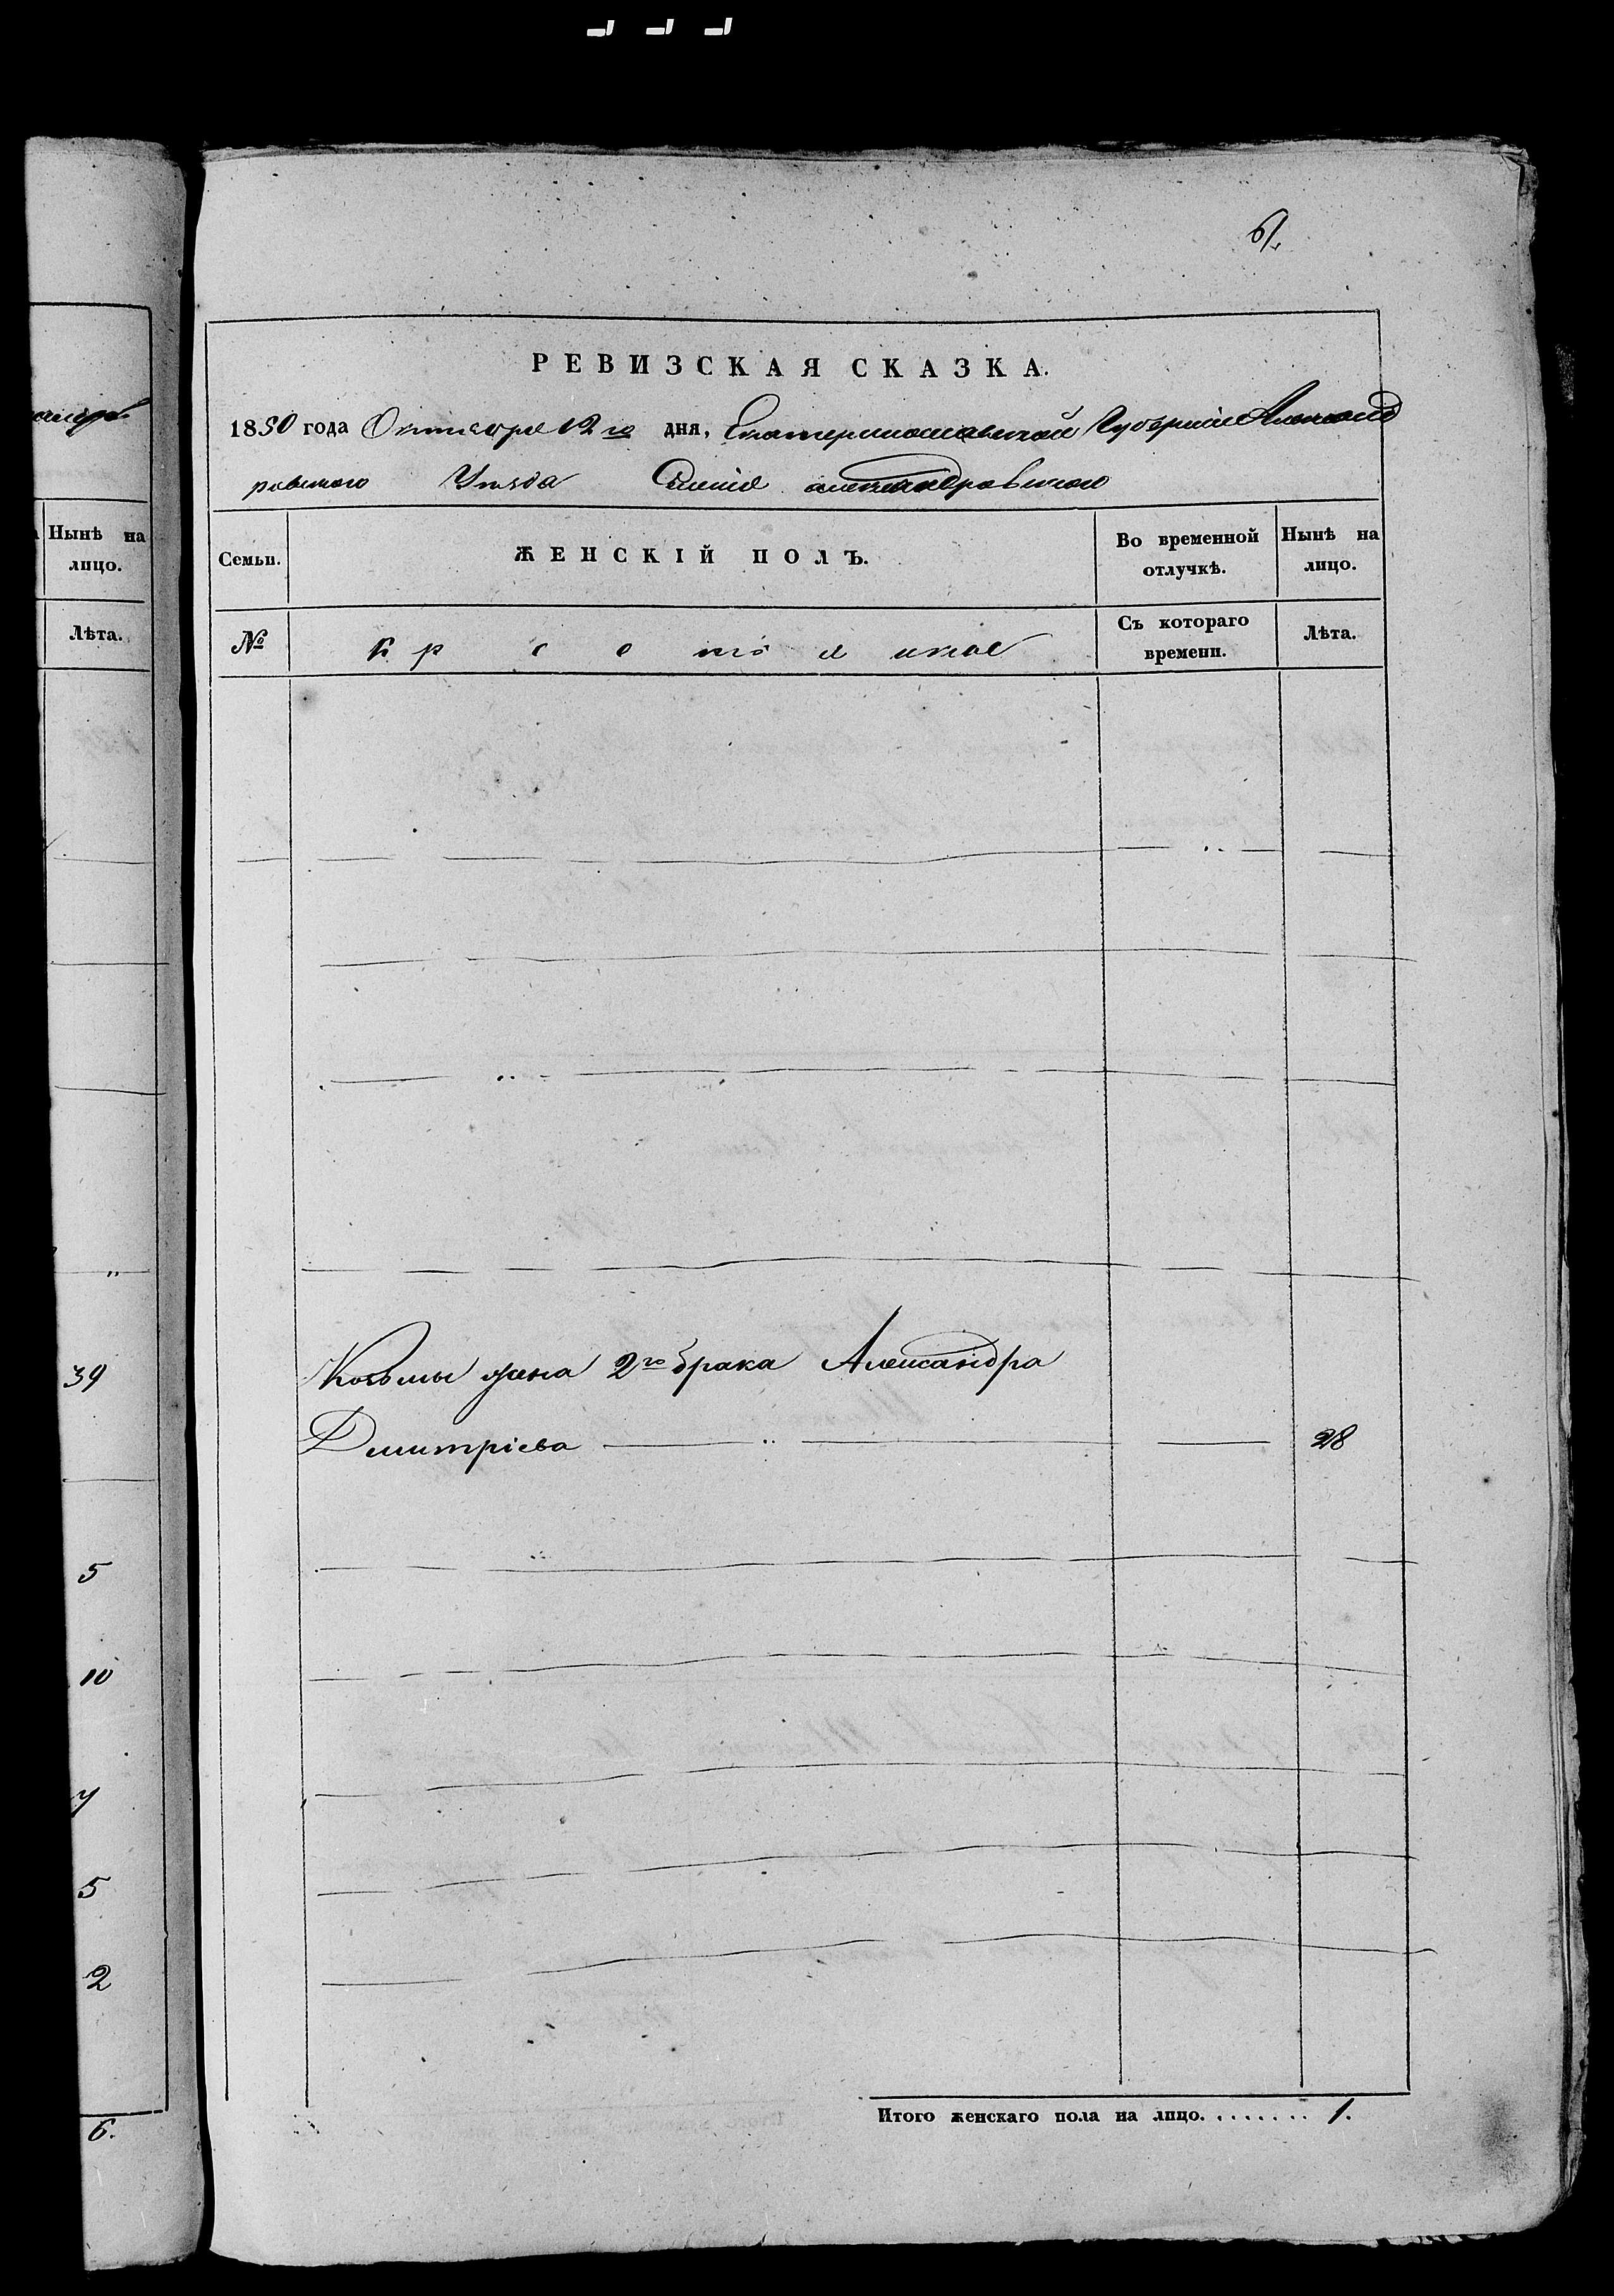 61.
РЕВИЗСКАЯ СКАЗКА.
1850 года Октября 12го дня, Екатеринославской Губерніи Александ
ровского Уезда Селенія Александровского
Нынѣ на
лицо.
Лѣта.
Семьи.
ЖЕНСКІЙ ПОЛЪ.
Во временной
отлучкѣ.
Нынѣ на
лицо.
№
Съ котораго
времени.
Лѣта.
Козьмы жена 2го брака Александра
Дмитріева 28
39
5
10
5
2
6.
Итого женскаго пола на лицо. . . . . . . . 1.